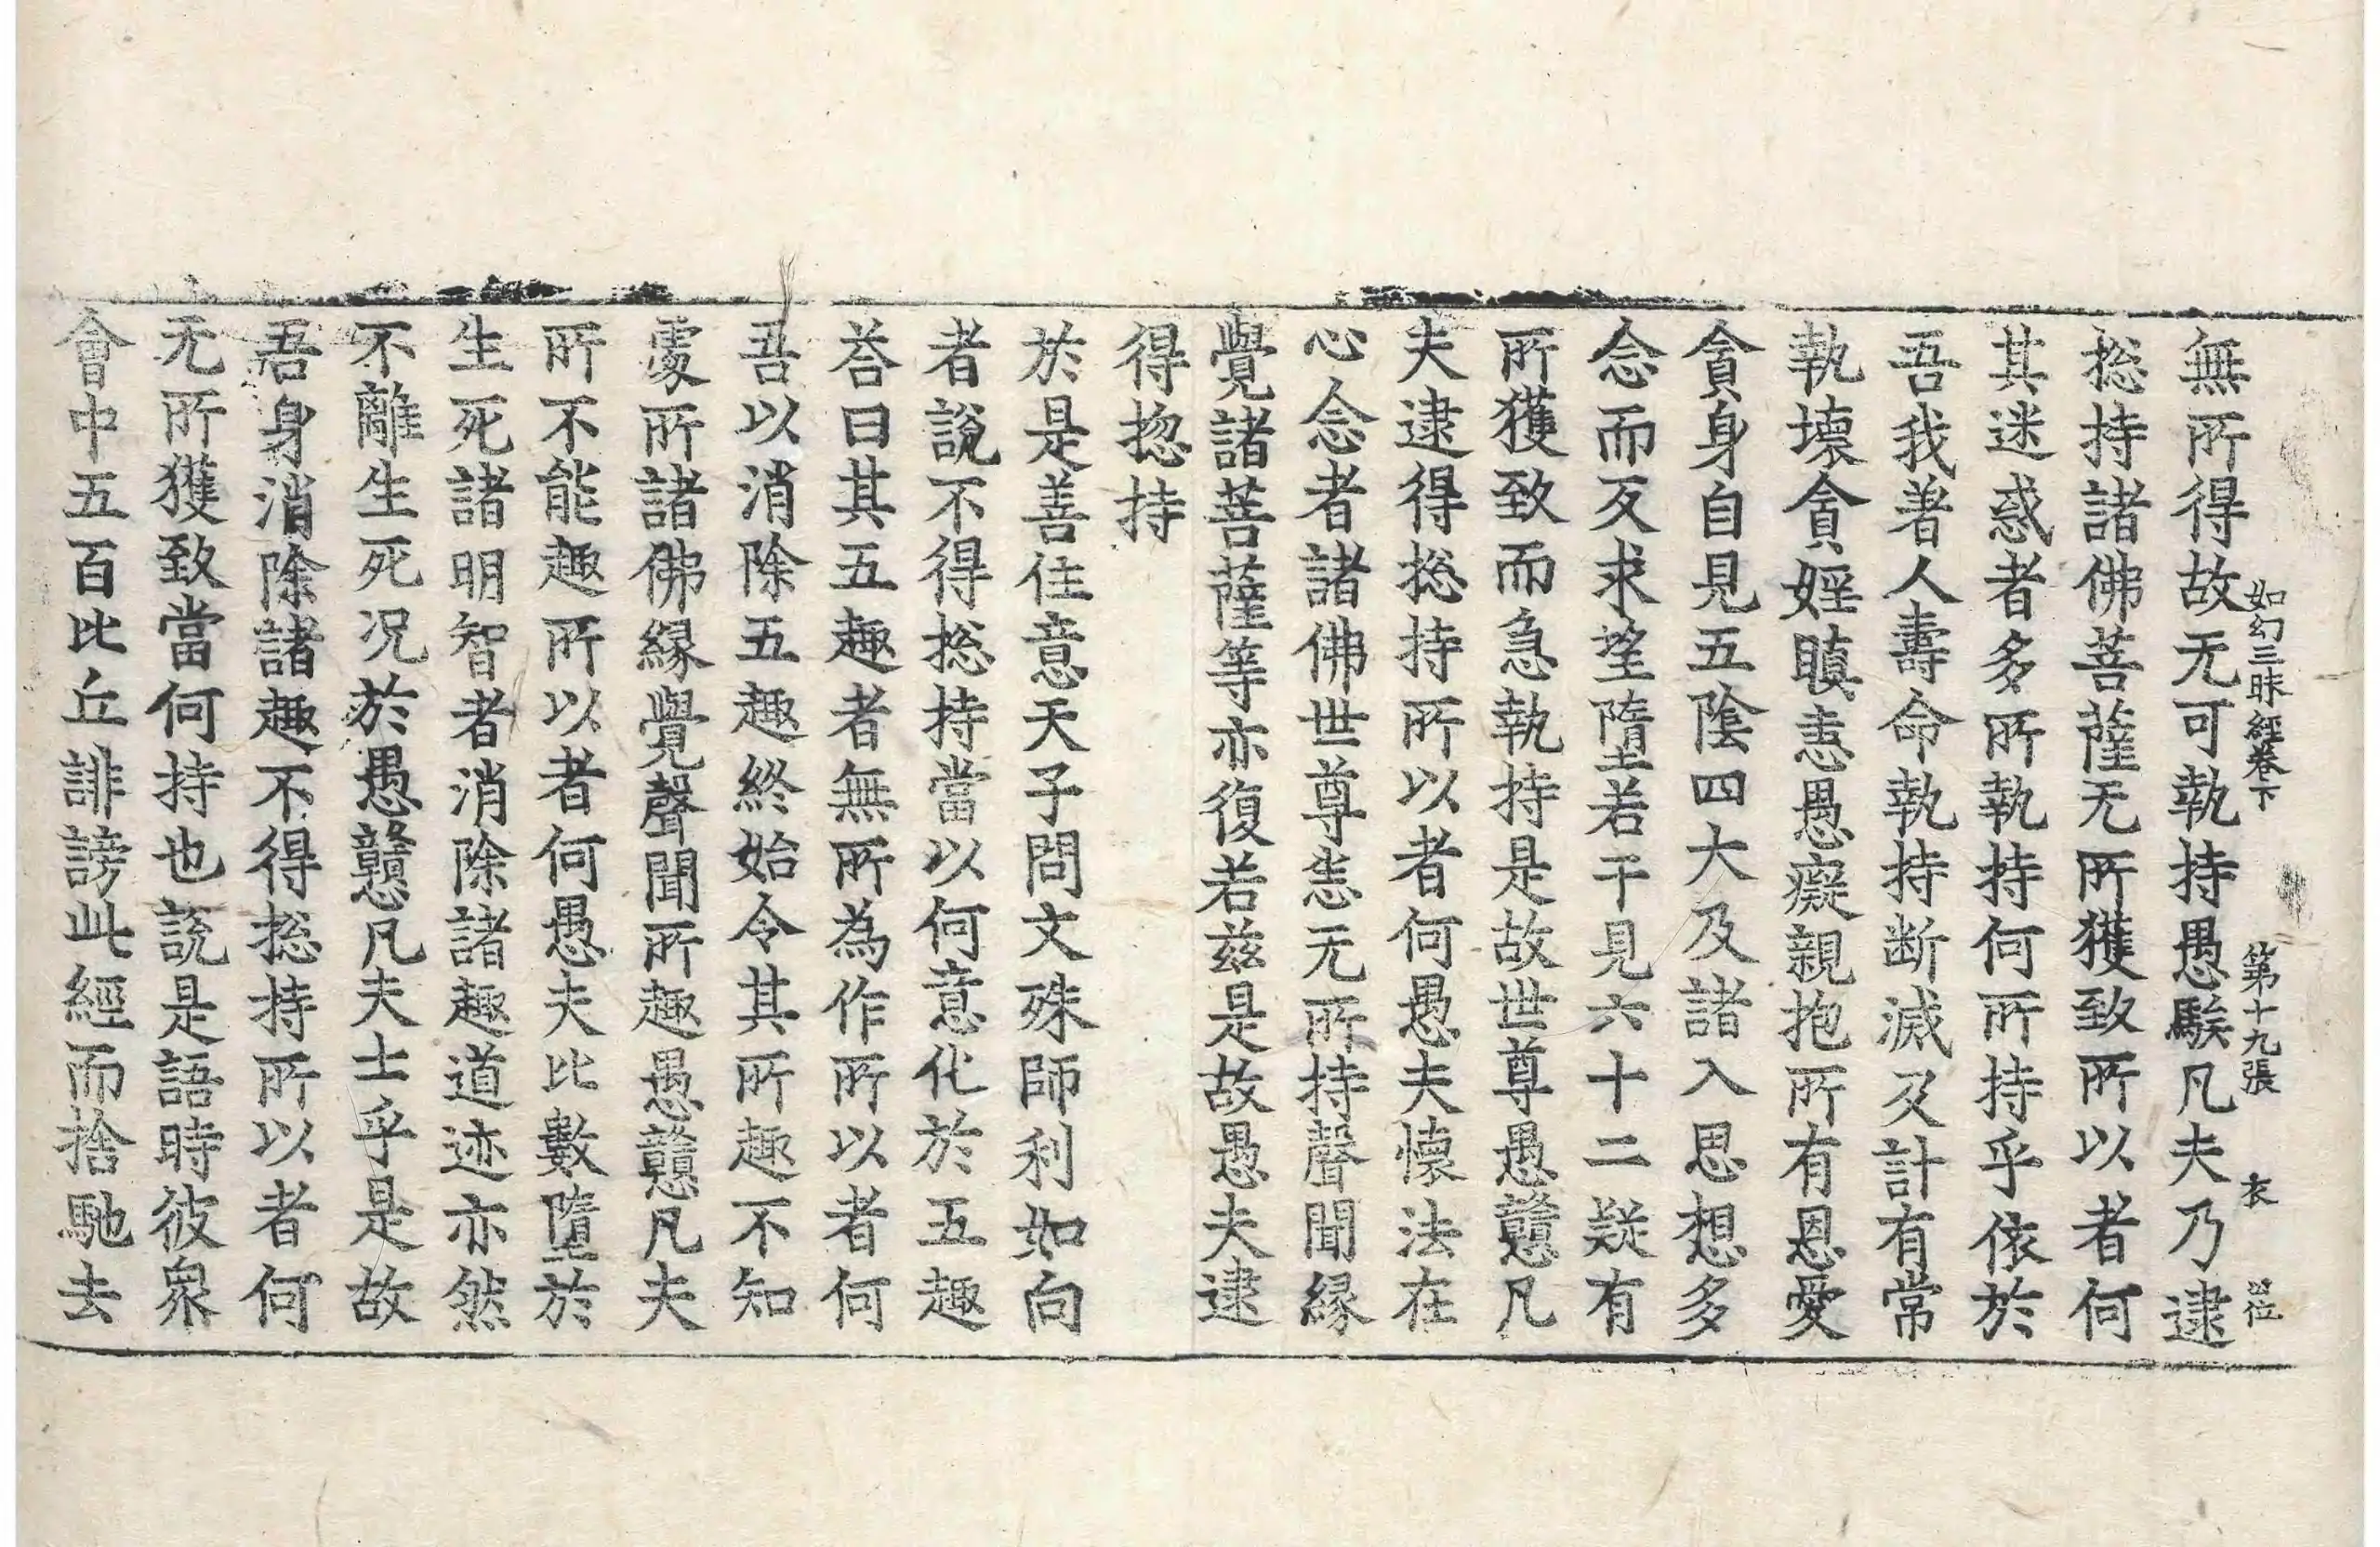 如幻三昧經卷下　第十九張　衣
無所得故无可執持愚騃凡夫乃逮
捴持諸佛菩薩无所獲致所以者何
其迷惑者多所執持何所持乎依於
吾我著人壽命執持断滅及計有常
執壞貪婬瞋恚愚癡親抱所有恩愛
貪身自見五陰四大及諸入思想多
念而反求望墮若干見六十二疑有
所獲致而急執持是故世尊愚戇凡
夫逮得捴持所以者何愚夫懷法在
心念者諸佛世尊恚无所持聲聞緣
覺諸菩薩等亦復若兹是故愚夫逮
得捴持
於是善住意天子問文殊師利如向
者說不得捴持當以何意化於五趣
荅曰其五趣者無所為作所以者何
吾以消除五趣終始令其所趣不知
處所諸佛緣覺聲聞所趣愚戇凡夫
所不能趣所以者何愚夫比數墮於
生死諸明智者消除諸趣道迹亦然
不離生死况於愚戇凡夫士乎是故
吾身消除諸趣不得捴持所以者何
无所獲致當何持也說是語時彼衆
會中五百比丘誹謗此經而捨馳去